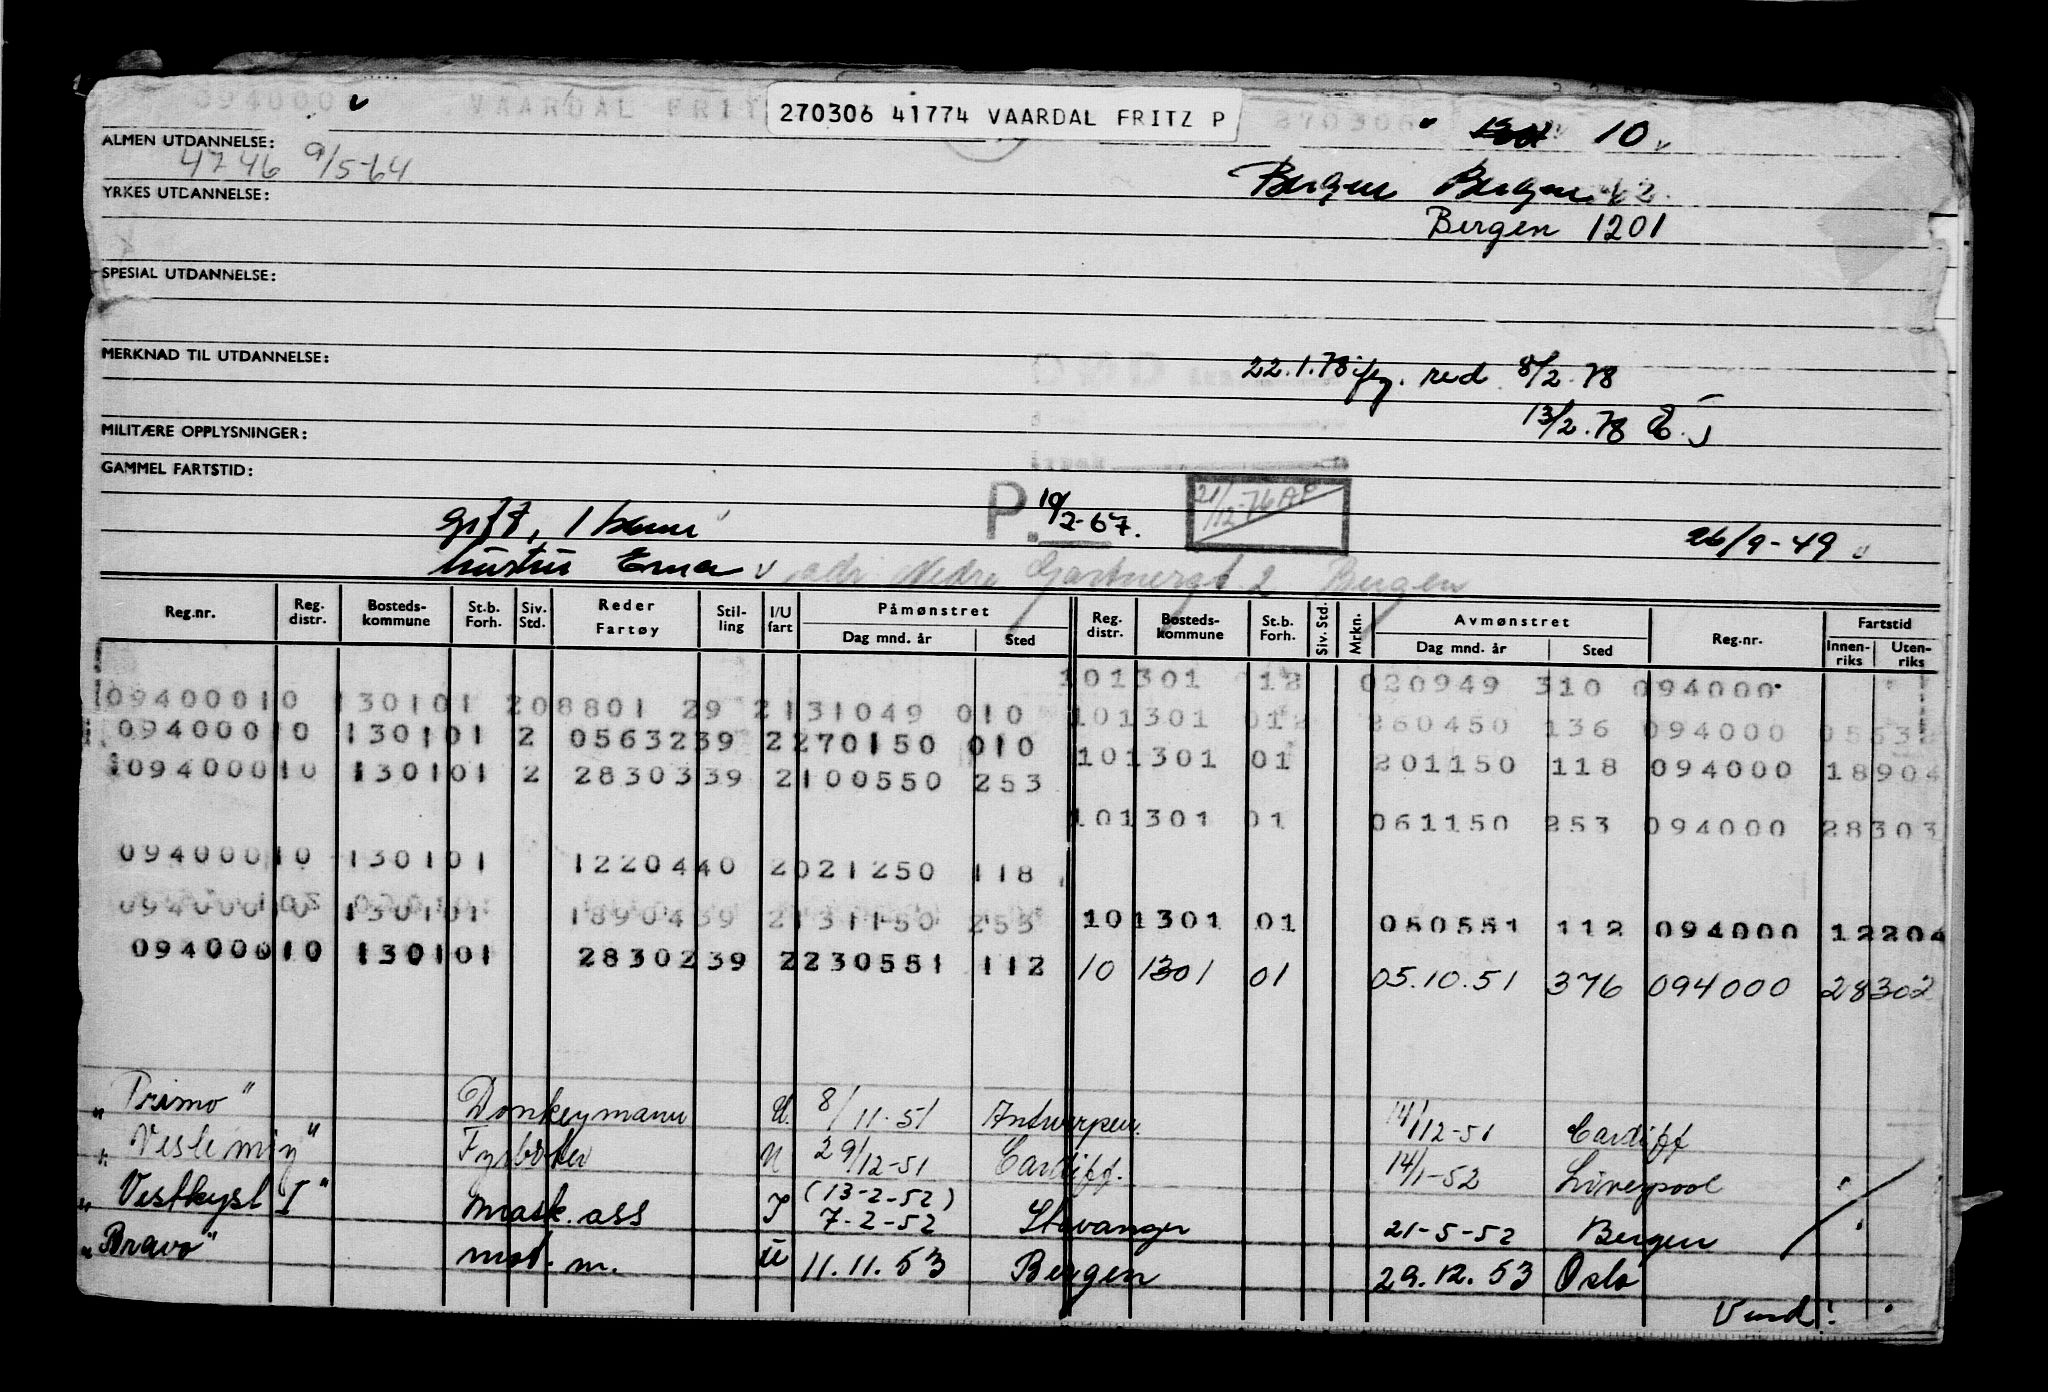 094000 VAARDAL FRIT 270306 41774 VAARDAL FRITZ P 270306 " 10
ALMEN UTDANNELSE:
4746 9/5-64
Bergen Bergen 2.
YRKES UTDANNELSE:
Bergen 1201
SPESIAL UTDANNELSE:
MERKNAD TIL UTDANNELSE:
DØD
22.1.78 red. 8/2.78
13/2.78
MILITÆRE OPPLYSNINGER:
GAMMEL FARTSTID:
P. 10/2-67.
21/12-76
gift, 1 barn
26/9-49
hustru Erna
adr Nedre Gartnergt 2 Bergen
Reg.nr. Reg. distr. Bosteds- kommune St.b. Forh. Siv. Std. Reder Fartøy Stil- ling I/U fart Påmønstret Dag mnd. år Sted Reg. distr. Bosteds- kommune St.b. Forh. Siv. Std. Mrkn. Avmønstret Dag mnd. år Sted Reg.nr. Fartstid Innen- riks Uten- riks
101301 012 020949 310 094000
09400010 130101 208801 29 2131049 010 101301 012 260450 136 094000 05632
09400010 130101 2 0563239 2270150 010 101301 01 201150 118 094000 18904
09400010 130101 2 2830339 2100550 253
101301 01 061150 253 094000 28303
09400010 130101 1220440 2021250 118
09400010 130101 1890439 2131150 253 101301 01 050551 112 094000 12204
09400010 130101 2830239 2230551 112 10 1301 01 05.10.51 376 094000 28302
"Primo" Donkeymann U. 8/11-51 Antwerpen. 14/12-51 Cardiff
"Veslemøy" Fyrbøter U 29/12-51 Cardiff. 14/1-52 Liverpool
"Vestkyst I" mask. ass I (13-2-52) 7-2-52 Stavanger 21-5-52 Bergen
"Bravo" mot. m. U 11.11.53 Bergen 29.12.53 Oslo
Vend!